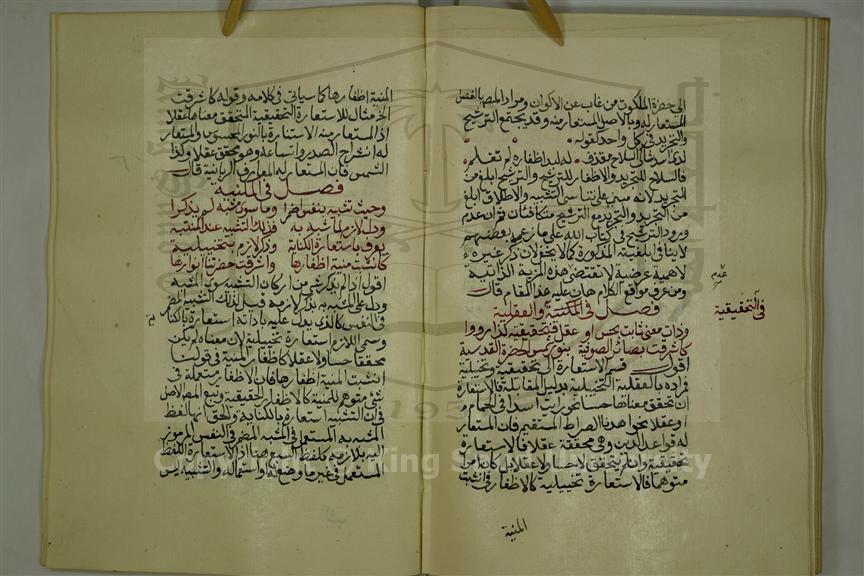 الى حضرة الملكوت من غاب عن الاكوان ومراد المص بالفصل
المستعار له وبالاصل المستعار منه وقد يجتمع الترشيح
والتجريد في كل واحد كقوله
لدى اسد شاكي السلاح مقذف له لبد اظفاره لم تقلم
فالسلاح للتجريد والاظفار للترشيح والترشيح ابلغ من
التجريد لانه مبني على تناسي التشبيه والاطلاق ابلغ
من التجريد والتجريد مع الترشيح متكافئان قران عدم
ورود الترشيح في كتاب الله على ما زعمه بعضهم
لا ينافي ابلغيته المذكورة كما لا يخفى لان ذكر غيره
لاهمية عرضية لا تقتضي هذه المزية الذاتية
ومن عرف مواقع الكلام هان عليه هذا المقام قال
فصل في التحقيقية والعقلية
وذات معنى ثابت بحس او عقل فتحقيقية كذا رووا
كاشرقت بصائر الصوفية بنور شمس الحضرة القدسية
اقول قسم الاستعارة الى تحقيقية وتخييلية
فراده بالعقلية التخييلية بدليل المقابلة فالاستعارة
ان تحقق معناها حسا نحو رايت اسدا في الحمام
وعقلا نحو اهدنا الصراط المستقيم فان المستعار
له قواعد الدين وهي محققة عقلا فالاستعارة
تحقيقية وان لم يتحقق لا حسا ولا عقلا بل كان امرا
متوهما فالاستعارة تخييلية كالاظفار في انشبت
المنية
عدم
في التحقيقية
المنية اظفارها كما سياتي في كلامه وقوله كاشرقت
الخ مثال للاستعارة التحقيقية المتحقق معناها عقلا
اذ المستعار منه الاستنارة بالنور المحسوس والمستعار
له انشراح الصدر واتساعه وهو محقق عقلا وكذا
الشمس فان المستعار له المعارف الربانية قال
فصل في المكنية
وحيث تشبيه بنفس اضمرا وما سوى مشبه لم يذكرا
ودل لازم لما شبه به فذلك التشبيه عند المنتبه
يعرف باستعارة الكناية وذكر لازم بتخييلية
كانشبت منية اظفارها واشرقت حضرتنا انوارها
اقول اذا لم يذكر شيء من اركان التشبيه سوى المشبه
ودل على المشبه به بذكر لازمه قيل لذلك التشبيه المضمر
في النفس كالذي يدل عليه باداته استعارة بالكناية
وسمي اللازم استعارة تخييلية لان معناه لم يكن
محققا حسا ولا عقلا كاظفار المنية في قولنا
انشبت المنية اظفارها فان الاظفار مستعملة في
شيء متوهم للمنية كالاظفار الحقيقية وتبع المص الاصل
في ان التشبيه استعارة بالكناية والحق انها لفظ
المشبه به المستعمل في المشبه المضمر في النفس المرموز
اليه بلازمه كلفظ السبع هنا اذ الاستعارة اللفظ
المستعمل في غير ما وضع له واستعماله والتشبيه ليس